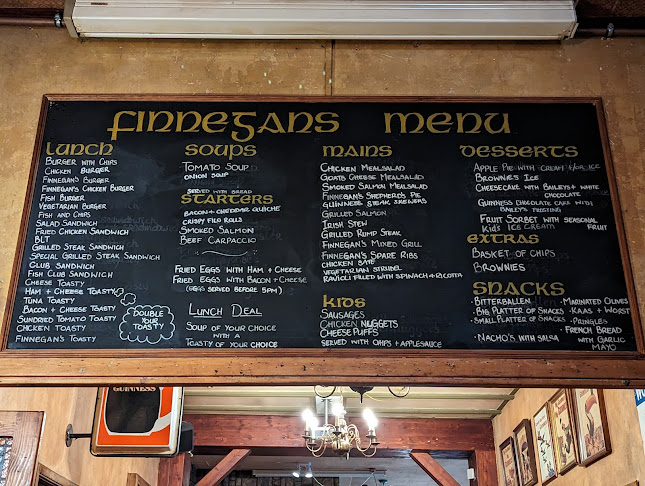 Finnegans Menu
Lunch
Burger with Chips
Chicken Burger
Finnegan's Burger
Finnegan's Chicken Burger
Fish Burger
Vegetarian Burger
Fish and Chips
Salad Sandwich
Fried Chicken Sandwich
BLT
Grilled Steak Sandwich
Special Grilled Steak Sandwich
Club Sandwich
Fish Club Sandwich
Cheese Toasty
Ham + Cheese Toasty
Tuna Toasty
Bacon + Cheese Toasty
Sundried Tomato Toasty
Chicken Toasty
Finnegan's Toasty
Double
Your
Toasty
Soups
Tomato Soup
Onion Soup
Served with Bread
Starters
Bacon + Cheddar Quiche
Crispy Filo Rolls
Smoked Salmon
Beef Carpaccio
Fried Eggs with Ham + Cheese
Fried Eggs with Bacon + Cheese
(Eggs served before 5pm)
Lunch Deal
Soup of your choice
with a
Toasty of your choice
Mains
Chicken Mealsalad
Goats Cheese Mealsalad
Smoked Salmon Mealsalad
Finnegan's Shepherd's Pie
Guinness Steak Skewers
Grilled Salmon
Irish Stew
Grilled Rump Steak
Finnegan's Mixed Grill
Finnegan's Spare Ribs
Chicken Sate
Vegetarian Strudel
Ravioli filled with Spinach + Ricotta
Kids
Sausages
Chicken Nuggets
Cheese Puffs
Served with Chips + Applesauce
Desserts
Apple Pie with Cream +/or Ice
Brownies Ice
Cheesecake with Baileys + White
Chocolate
Guinness Chocolate Cake with
Bailey's Frosting
Fruit Sorbet with Seasonal
Fruit
Kid's Ice Cream
Extras
Basket of Chips
Brownies
Snacks
· Bitterballen
· Big Platter of Snacks
· Small Platter of Snacks
· Nacho's with Salsa
· Marinated Olives
· Kaas + Worst
· Pringles
· French Bread
with Garlic
Mayo
GUINNESS